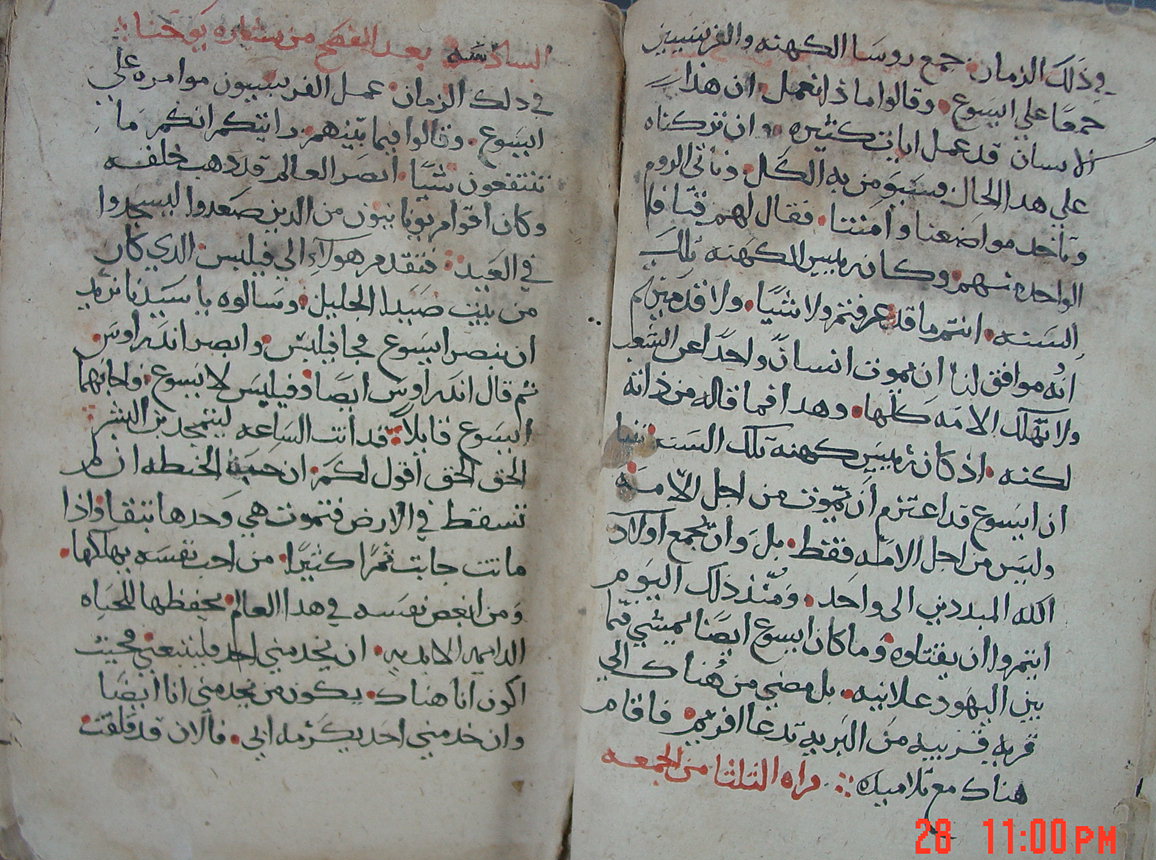 في ذلك الزمان جمع روسا الكهنه والفريسيين
جمعًا علي ايسوع وقالوا ماذا نعمل ان هذا
الانسان قد عمل ايات كثيره وان تركناه
علي هدا الحال فسيومن به الكل وتاتي الروم
وتاخد مواضعنا وامتنا فقال لهم قيافا
الواحد منهم وكان رييس الكهنه تلك
السنه انتم ما قد عرفتم ولا شيًا ولا
انه موافق لنا ان يموت انسانًا واحدًا عن الشعب
ولا تهلك الامه كلها وهدا فما قاله من ذاته
لكنه اذ كان رييس كهنه تلك السنه تنبا
ان ايسوع قد اعتزم ان يموت من اجل الامه
وليس من اجل الامه فقط بل وان يجمع اولاد
الله المبددين الي واحد ومنذ ذلك اليوم
ايتمروا ان يقتلوه وما كان ايسوع ايضًا يمشي فيما
بين اليهود علانيه بل مضي من هناك الي
قريه قريبه من البريه تدعا افريم فاقام
هناك مع تلاميده قراه الثلثا من الجمعه
السادسه بعد الفصح من بشاره يوحنا
في دلك الزمان عمل الفريسيون موامره علي
ايسوع وقالوا فيما بينهم رايتكم انكم ما
تنتفعون شيًا ابصر العالم قد دهب خلفه
وكان اقوام يونانيون من الدين صعدوا ليسجدوا
في العيد فتقدم هولاء الي فيلبس الدي كان
من بيت صيدا الجليل وسالوه يا سيدنا نريد
ان نبصر ايسوع فجا فيلبس وابصر اندراوس
ثم قال اندراوس ايضًا وفيلبس لايسوع واجابهما
ايسوع قايلاً قد اتت الساعه ليتمجد بن البشر
الحق الحق اقول لكم ان حبة الحنطه ان لم
تسقط في الارض فتموت هي وحدها تبقا واذا
ماتت جابت ثمرًا كثيرًا من احب نفسه يهلكها
ومن ابغض نفسه في هدا العالم يحفظها للحياه
الدايمه الابديه ان يخدمني احد فليتبعني فحيث
اكون انا هناك يكون من يخدمني انا ايضًا
وان خدمني احد يكرمه ابي فالان قد قلقت
28 11:00 PM